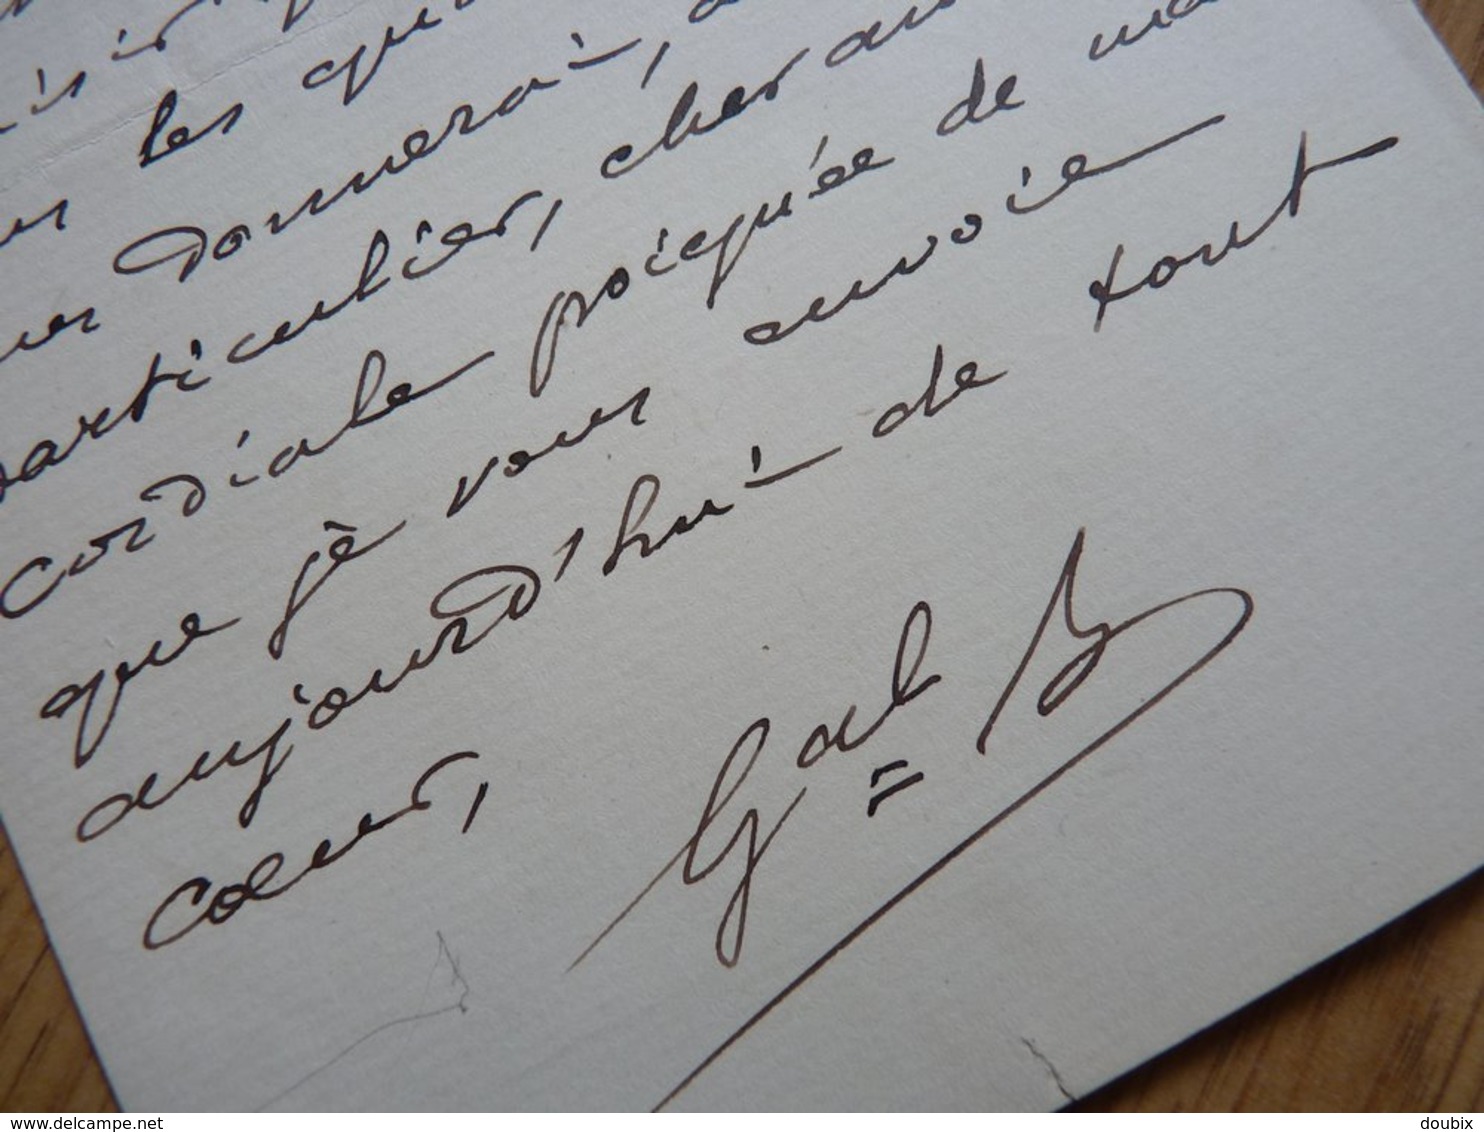 les
donnerai,
particulier, cher
cordiale poignée de
que je vous envoie
aujourd'hui de tout
coeur,
Gal B
delcampe.net
doubix